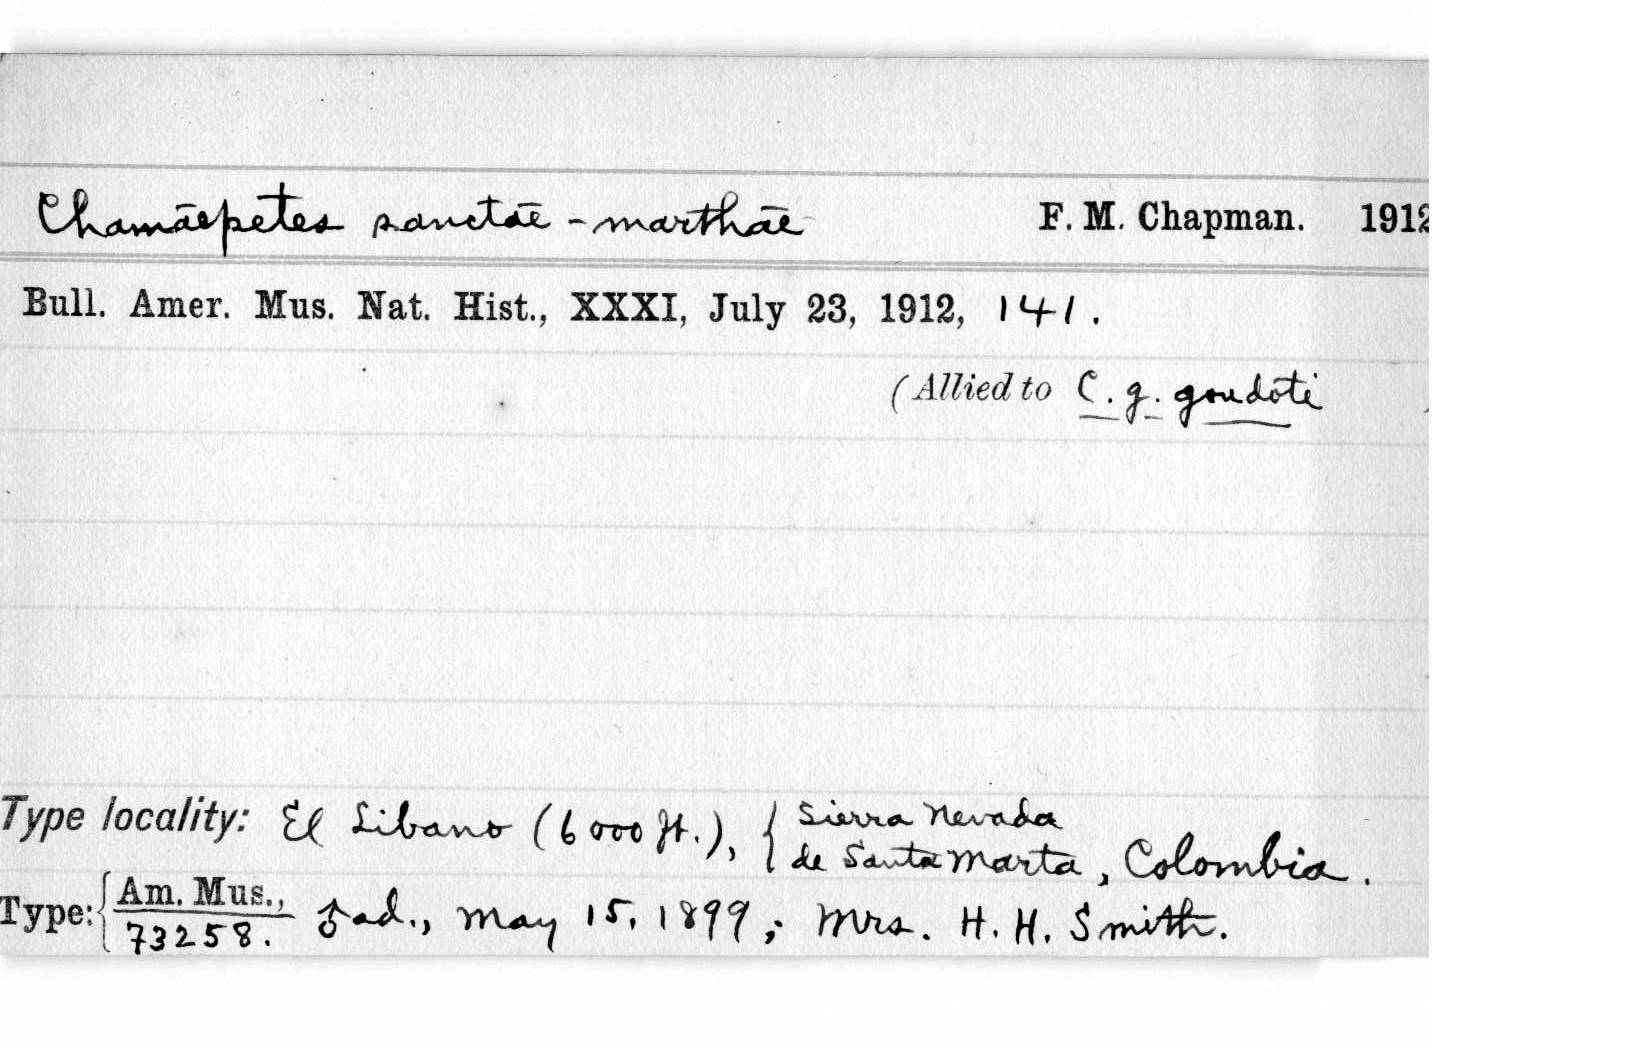 Chamaepetes sanctae-marthae F. M. Chapman. 1912
Bull. Amer. Mus. Nat. Hist., XXXI, July 23, 1912, 141.
(Allied to C. g. goudoti
Type locality: El Libano (6000 ft.), { Sierra Nevada
de Santa Marta, Colombia.
Type: { Am. Mus.,
73258. ♂ ad., May 15, 1899; Mrs. H. H. Smith.